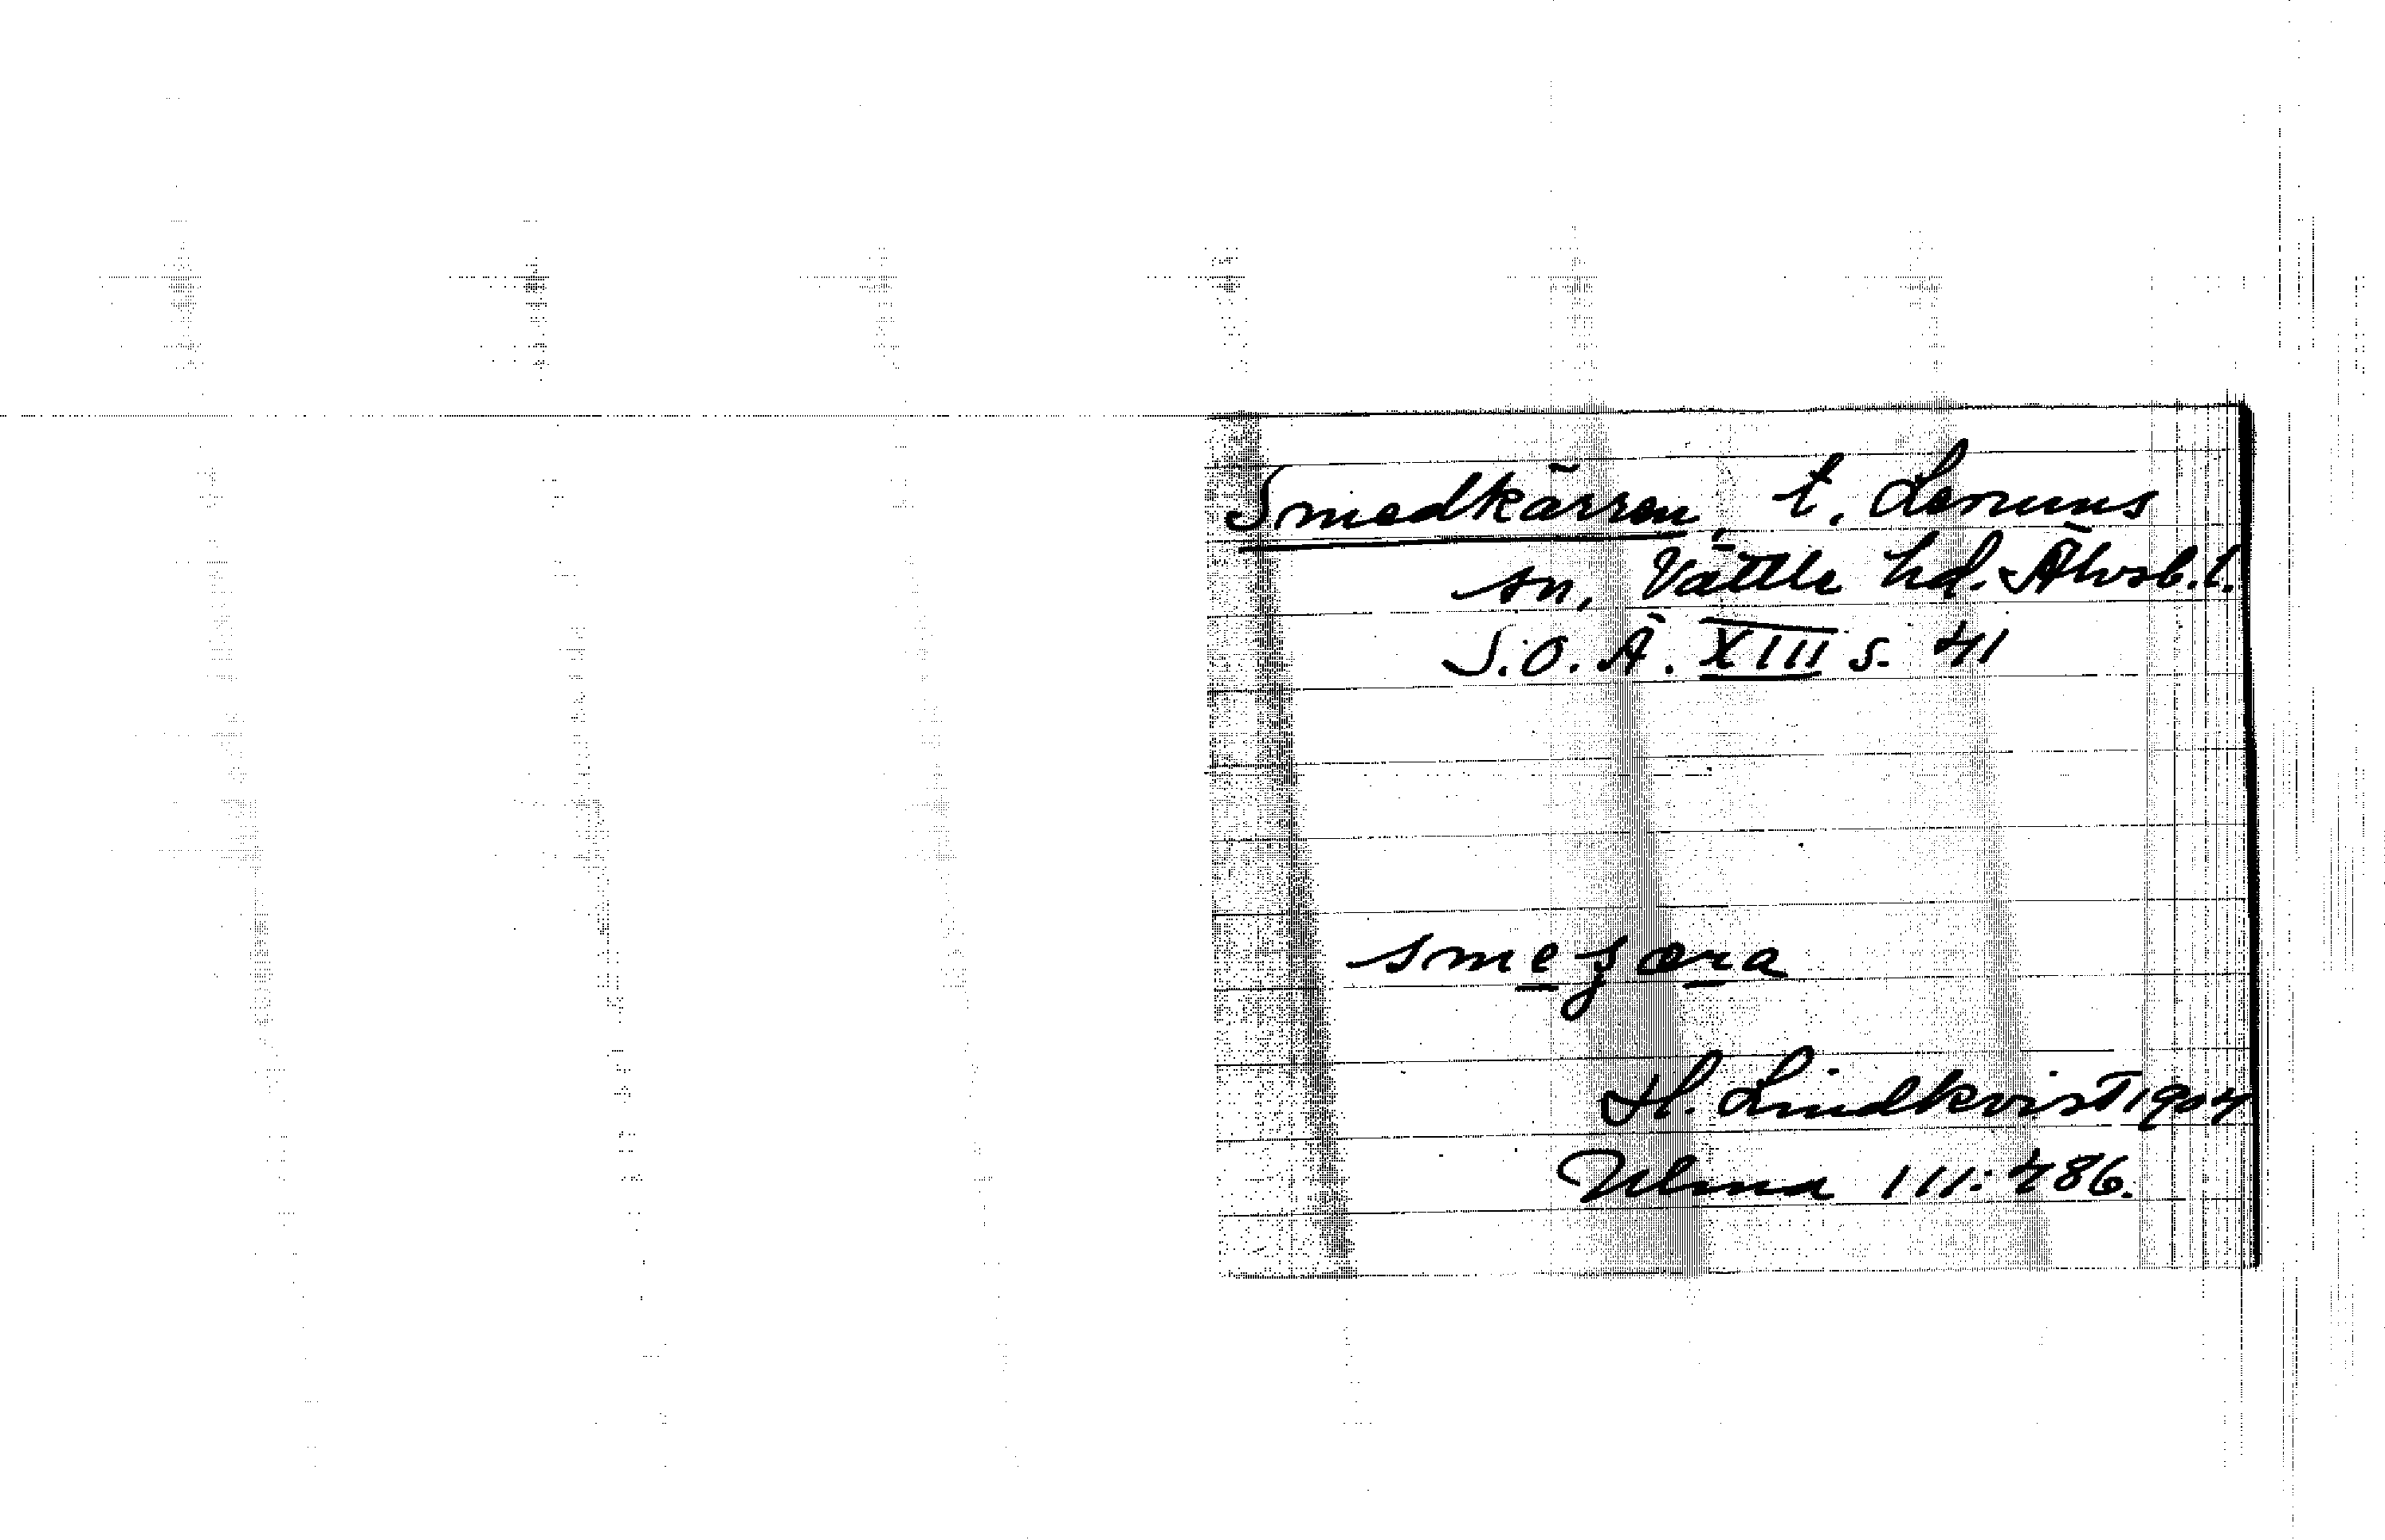 Smedkärren, t. Lerums
sn, Vättle hd. Älvsb. l.
S.O.Ä. XIII s. 41
smeʒæra
H. Lindkvist 1904
Ulma 111:486.